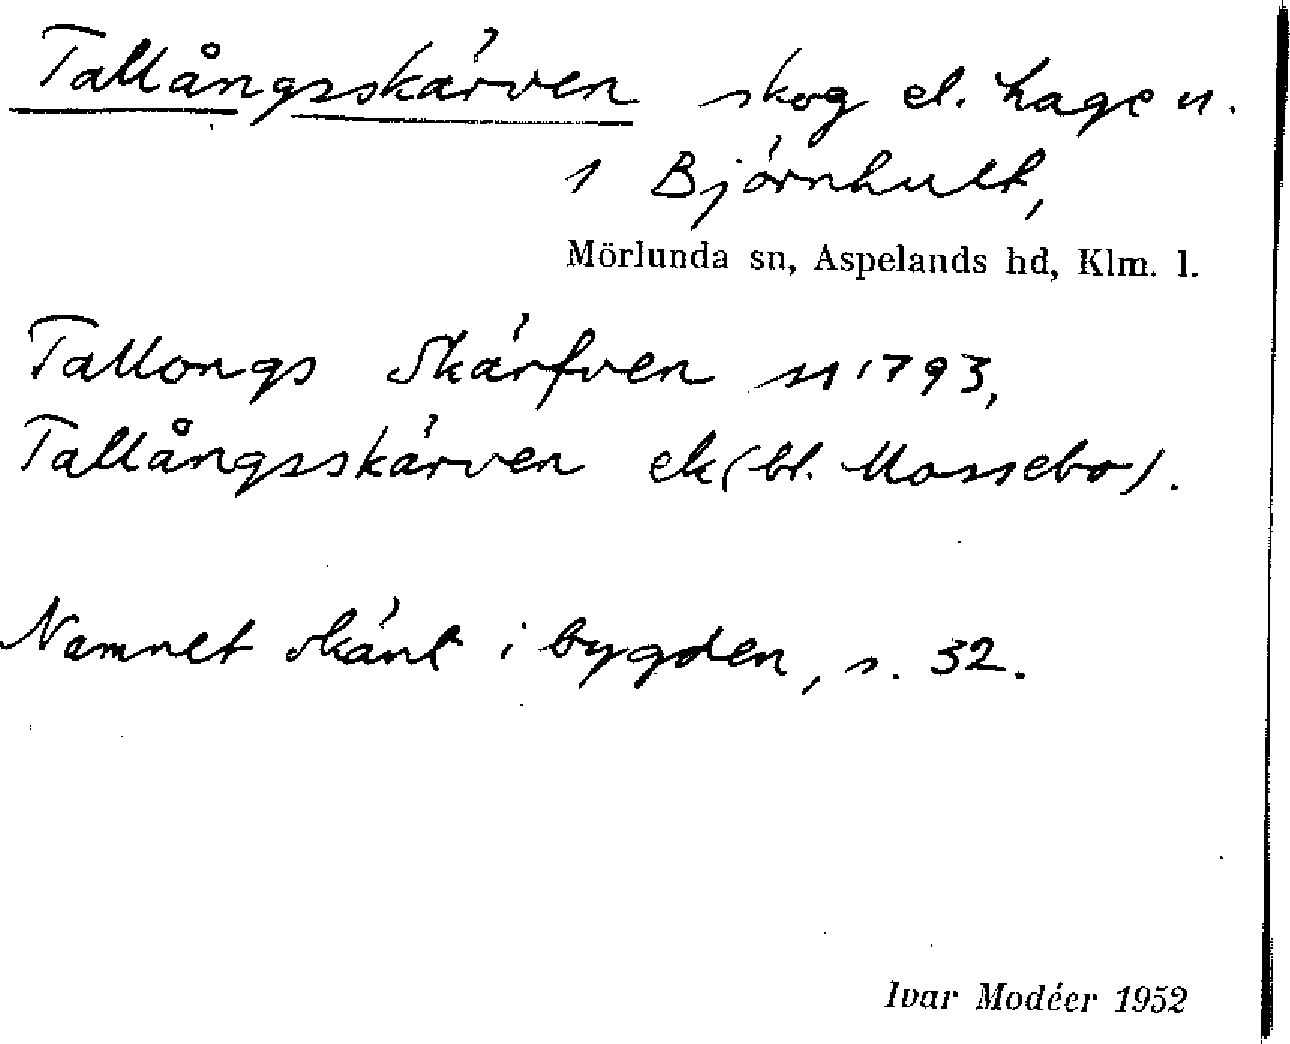 Tallångsskärven skog el. hage u.
1 Björnhult,
Mörlunda sn, Aspelands hd, Klm. l.
Tallongs Skärfven 1793,
Tallångsskärven ek (bl. Mossebo).
Namnet känt i bygden, s. 32.
Ivar Modéer 1952